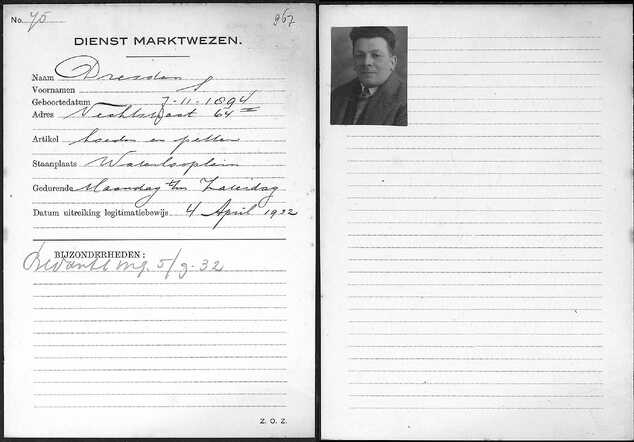 No. 75
967
DIENST MARKTWEZEN.
Naam Dresden
Voornamen S
Geboortedatum 7-11-1894
Adres Vechtstraat 64
Artikel hoeden en petten
Staanplaats Waterlooplein
Gedurende Maandag t/m Zaterdag
Datum uitreiking legitimatiebewijs 4 April 1932
BIJZONDERHEDEN:
5/9-32
Z. O. Z.